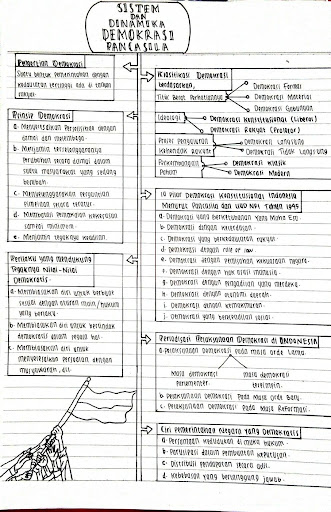 SISTEM
DAN
DINAMIKA
DEMOKRASI
PANCASILA
Pengertian Demokrasi
Suatu bentuk Pemerintahan dengan
kedaulatan tertinggi ada di tangan
rakyat.
Prinsip Demokrasi
a. Menyelesaikan Perselisihan dengan
damai dan melembaga.
b. Menjamin terselenggaranya
Perubahan secara damai dalam
suatu masyarakat yang sedang
berubah.
c. Menyelenggarakan pergantian
pimpinan secara teratur.
d. Membatasi pemakaian kekerasan
sampai minimum.
e. Menjamin tegaknya keadilan.
Perilaku yang mendukung
tegaknya Nilai-Nilai
Demokrasi.
a. Membiasakan diri untuk berbuat
sesuai dengan aturan main / hukum
yang berlaku.
b. Membiasakan diri untuk bertindak
demokratis dalam segala hal.
c. Membiasakan diri untuk
menyelesaikan persoalan dengan
musyawarah, dll.
Klasifikasi Demokrasi
berdasarkan.
Titik Berat Perhatiannya
Demokrasi Formal
Demokrasi Material
Demokrasi Gabungan
Ideologi
Demokrasi Konstitusional (Liberal)
Demokrasi Rakyat (Proletar)
Proses Penyaluran
Kehendak Rakyat
Demokrasi Langsung
Demokrasi Tidak Langsung
Perkembangan
Paham
Demokrasi Klasik
Demokrasi Modern
10 Pilar Demokrasi Konstitusional Indonesia
Menurut Pancasila dan UUD NRI Tahun 1945
a. Demokrasi yang Berketuhanan Yang Maha Esa.
b. Demokrasi dengan kecerdasan.
c. Demokrasi yang berkedaulatan rakyat.
d. Demokrasi dengan rule of law
e. Demokrasi dengan pemisahan kekuasaan negara.
f. Demokrasi dengan hak asasi manusia.
g. Demokrasi dengan pengadilan yang merdeka.
h. Demokrasi dengan otonomi daerah.
i. Demokrasi dengan kemakmuran.
j. Demokrasi yang berkeadilan sosial.
Periodisasi Pelaksanaan Demokrasi di INDONESIA
a. Pelaksanaan Demokrasi Pada masa orde Lama.
Masa demokrasi
Parlementer.
masa demokrasi
terpimpin.
b. Pelaksanaan Demokrasi Pada Masa Orde Baru.
c. Pelaksanaan Demokrasi Pada Masa Reformasi.
Ciri Pemerintahan Negara yang Demokratis
a. Persamaan kedudukan di muka hukum.
b. Partisipasi dalam pembuatan keputusan.
c. Distribusi pendapatan secara adil.
d. Kebebasan yang bertanggung jawab.